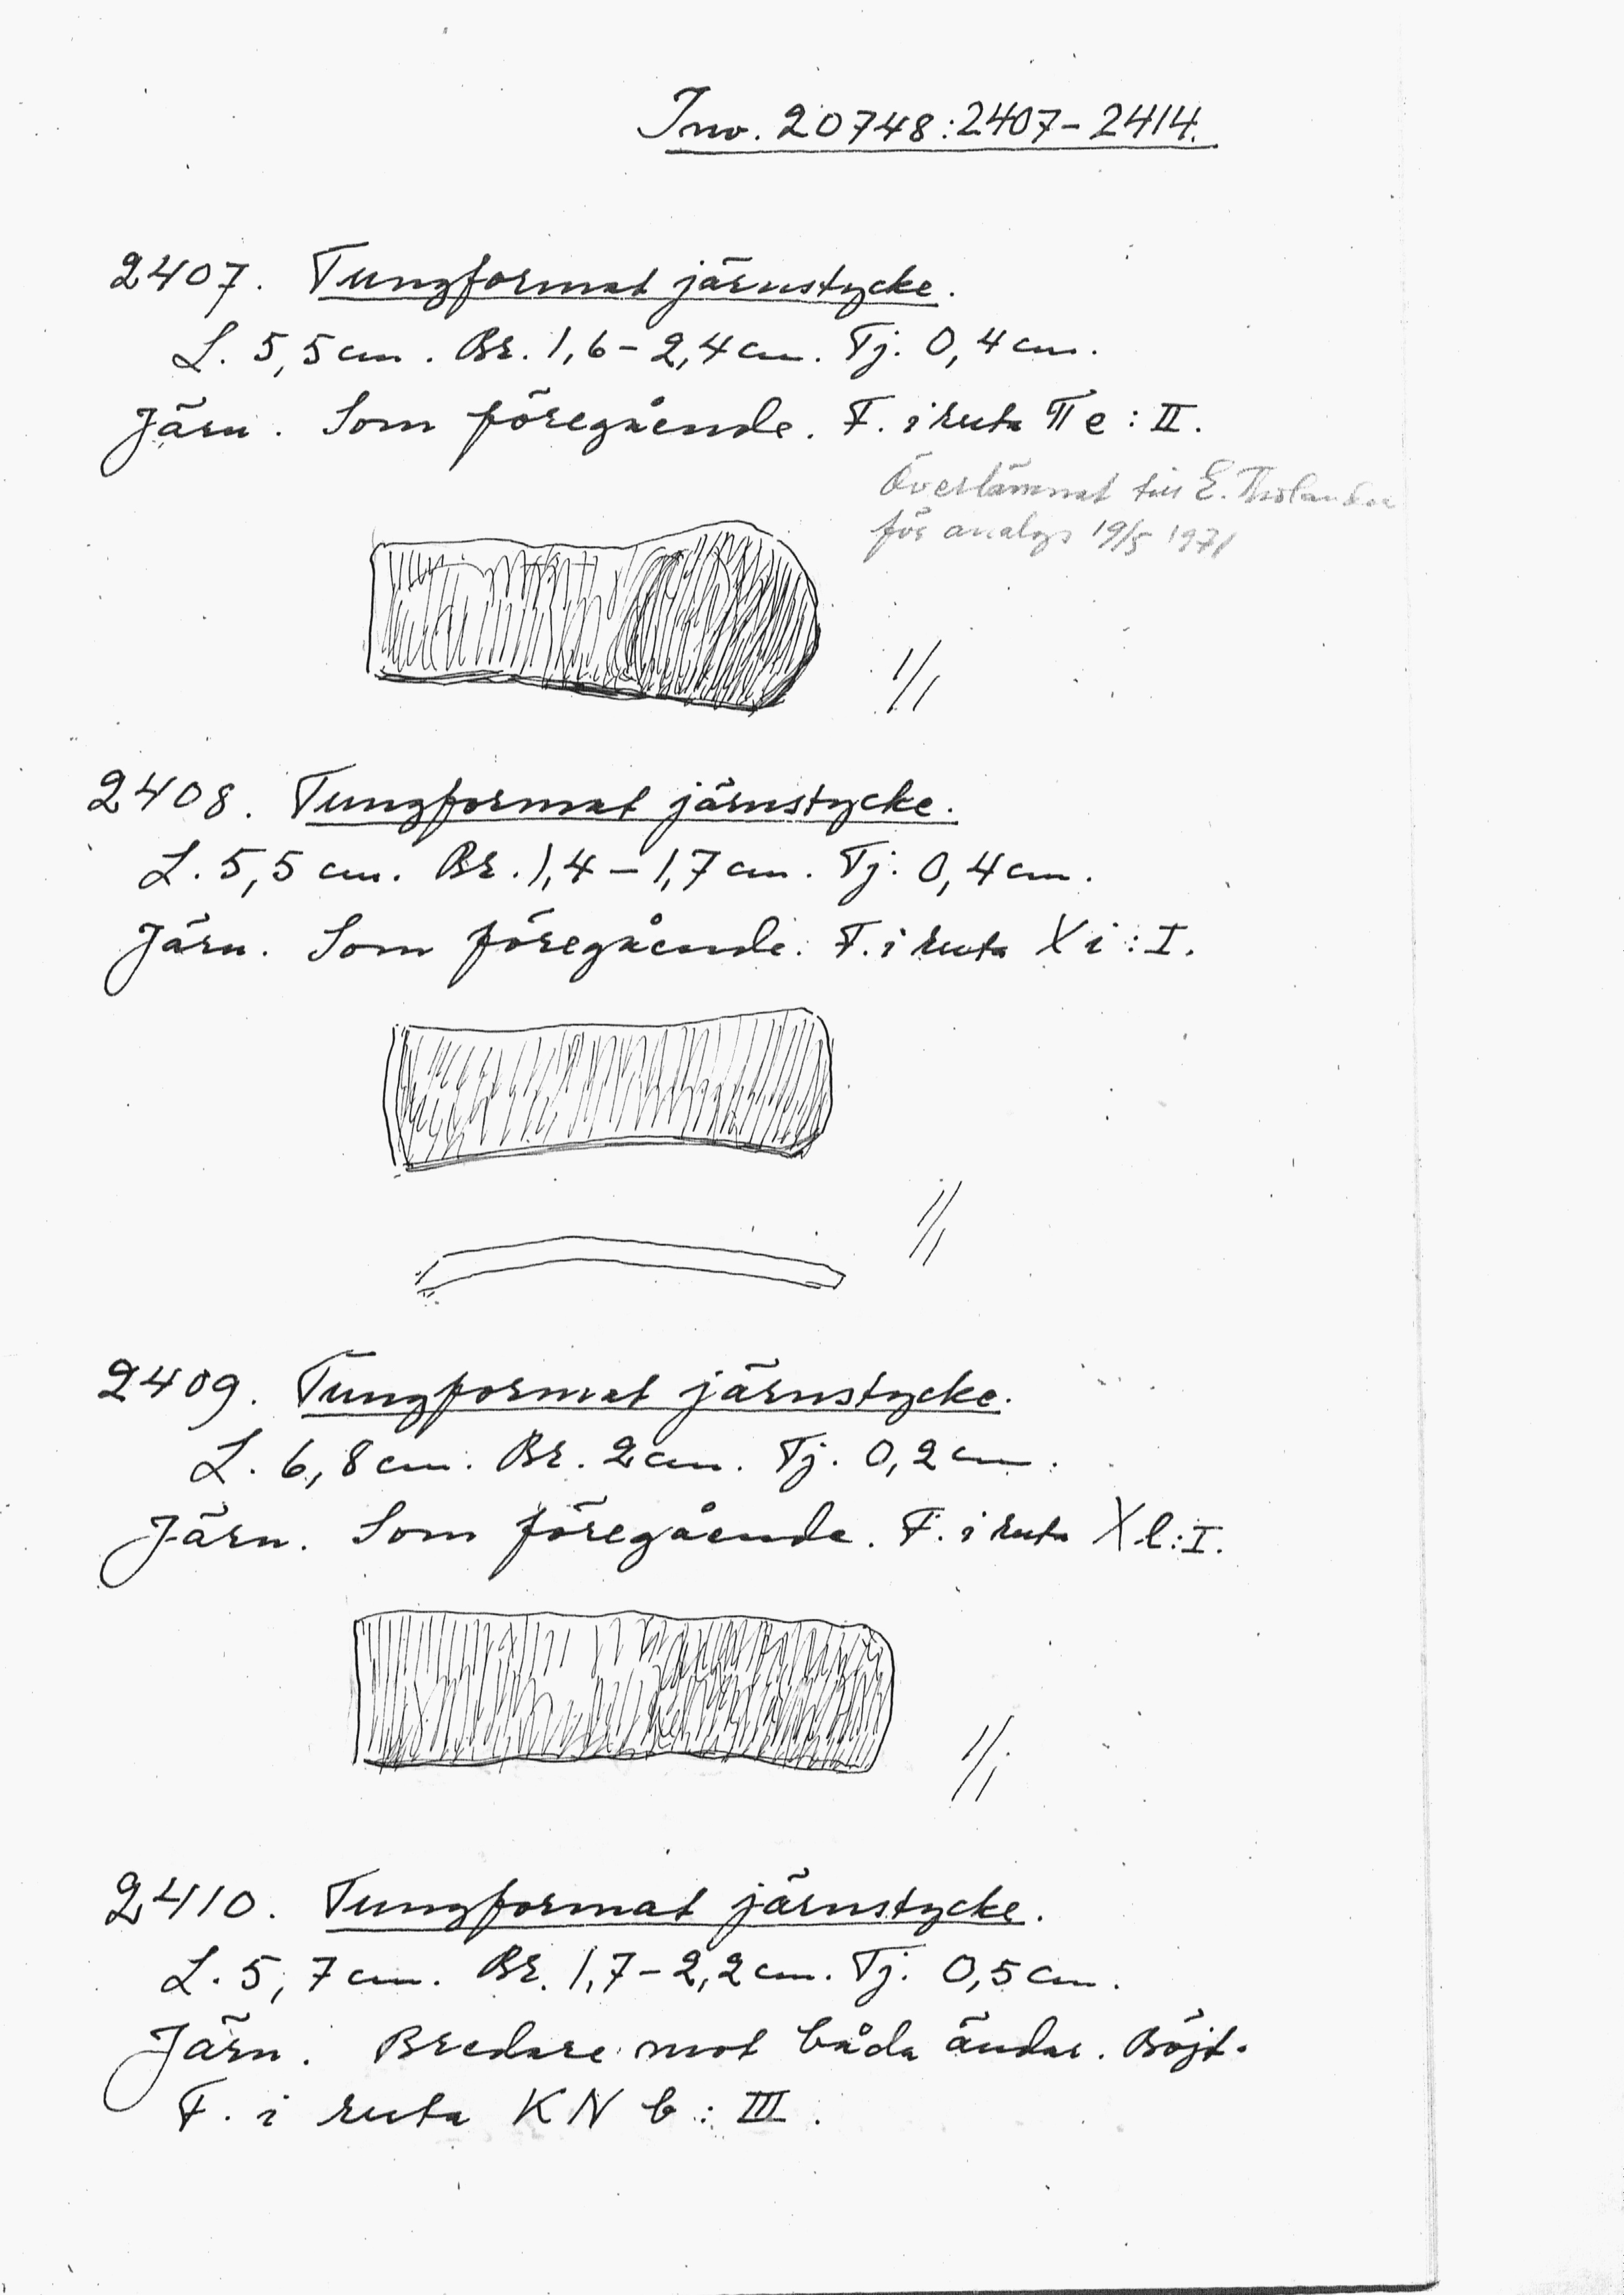 Inv. 20748:2407-2414.
2407. Tungformat järnstycke.
L. 5,5 cm. Br. 1,6-2,4 cm. Tj. 0,4 cm.
Järn. Som föregående. F. i ruta Π e : II.
Överlämnat till E. Tholander
för analys 19/5 1971
1/1
2408. Tungformat järnstycke.
L. 5,5 cm. Br. 1,4-1,7 cm. Tj. 0,4 cm.
Järn. Som föregående. F. i ruta X i : I.
1/1
2409. Tungformat järnstycke.
L. 6,8 cm. Br. 2 cm. Tj. 0,2 cm.
Järn. Som föregående. F. i ruta X l : I.
1/1
2410. Tungformat järnstycke.
L. 5,7 cm. Br. 1,7-2,2 cm. Tj. 0,5 cm.
Järn. Bredare mot båda ändar. Böjt.
F. i ruta KN b : III.